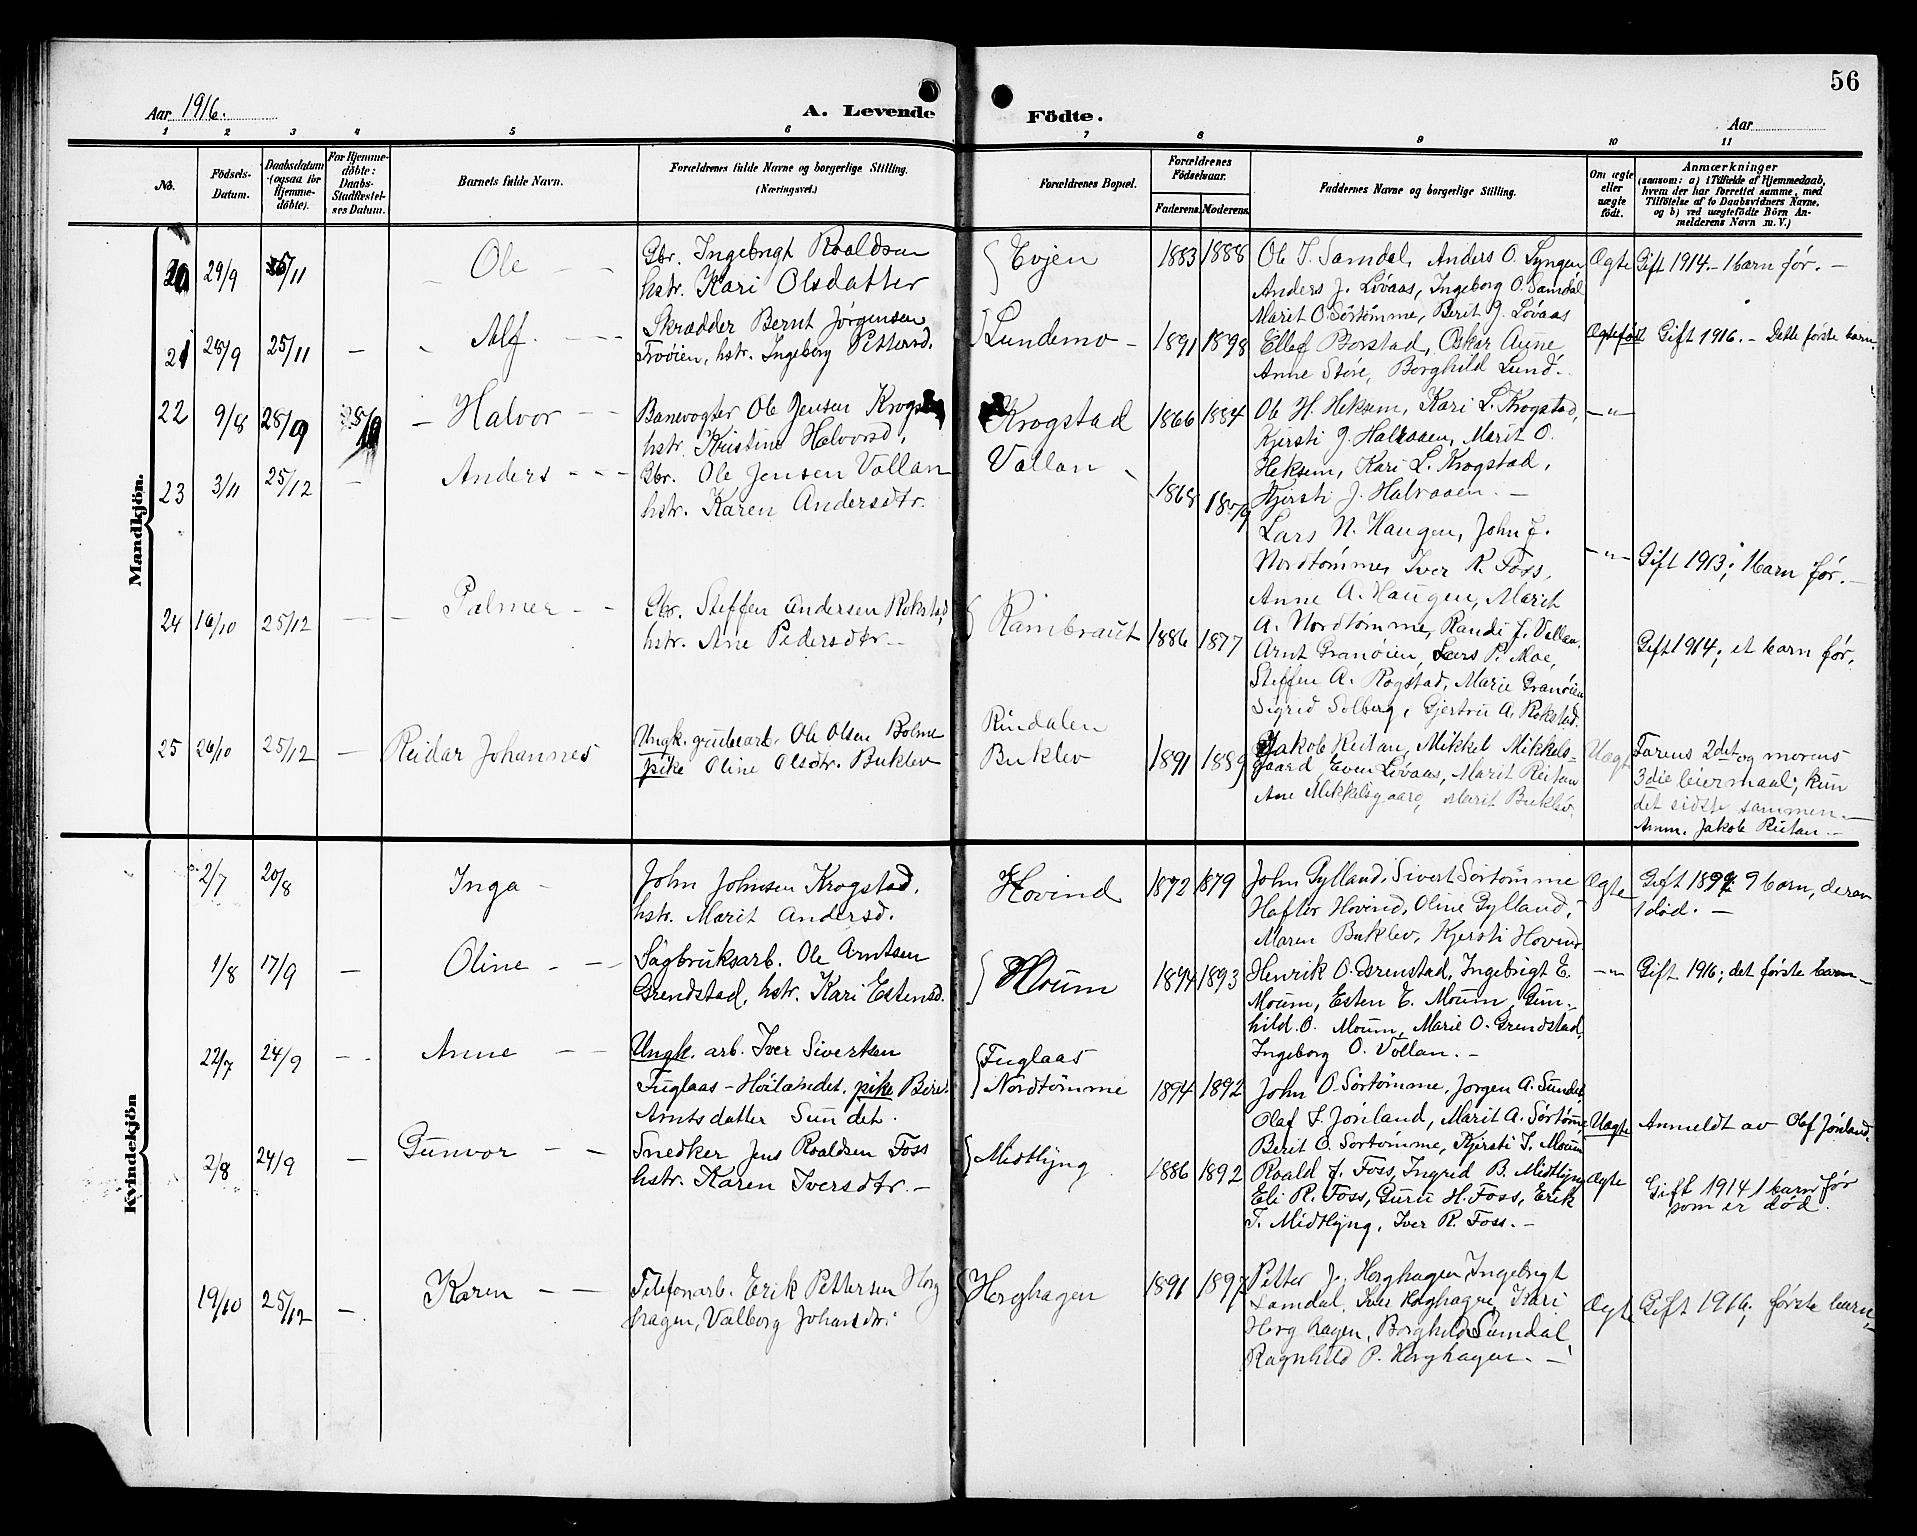 56
Aar 1916.
A. Levende Födte.
Aar
1 2 3 4 5 6 7 8 9 10 11
No.
Födsels-Datum.
Daabsdatum (ogsaa for Hjemme-döbte).
For Hjemme-döbte: Daabs-Stadfæstel-ses Datum.
Barnets fulde Navn.
Forældrenes fulde Navne og borgerlige Stilling.
(Næringsvei.)
Forældrenes Bopæl.
Forældrenes Födselsaar.
Faderens. Moderens.
Faddernes Navne og borgerlige Stilling.
Om ægte eller uægte födt.
Anmærkninger
(saasom: a) i Tilfælde af Hjemmedaab,
hvem der har forrettet samme, med
Tilföielse af to Daabsvidners Navne.
og b) ved uægtefödte Börn An-
melderens Navn m. V.)
Mandkjön.
20 29/9 26/11 Ole
Gbr. Ingebrigt Roaldsen
hstr. Kari Olsdatter
Evjen 1883 1888
Ole I. Samdal, Anders O. Lyngen
Anders J. Løvaas, Ingeborg O. Samdal
Marit O. Sörtömme, Berit J. Løvaas
Ægte Gift 1914. - 1 barn før. -
21 28/9 25/11 - Alf.
Skrædder Bernt Jørgensen
Trøien, hstr. Ingeborg Pettersd.
Lundemo - 1891 1898
Ellef Borstad, Oskar Aune
Anne Støre, Borghild Lund.
Ægtefødt Gift 1916. - Dette første barn.
22 9/8 28/9 - Halvor
Banevogter Ole Jensen Krogstad
hstr. Kristine Halvorsd.
Krogstad 1866 1884
Ole H. Heksem, Kari L. Krogstad,
Kjersti J. Halvaaen, Marit O.
Heksem, Kari L. Krogstad,
Kjersti J. Halvaaen. -
-"-
23 3/11 25/12 - Anders
Gbr. Ole Jensen Vollan
hstr. Karen Andersdtr.
Vollan 1868 1879
Lars N. Haugen, John J.
Nordtømme, Iver R. Foss,
Anne A. Haugen, Marit
A. Nordtømme, Randi J. Vollan.
-"- Gift 1913; 1 barn før. -
24 16/10 25/12 - Palmer
Gbr. Steffen Andersen Rokstad,
hstr. Ane Pedersdtr. -
Rambraut 1886 1877
Arnt Granøien, Lars P. Moe,
Steffen A. Rogstad, Marie Granøien
Sigrid Solberg, Gjertru A. Rokstad.
Gift 1914; et barn før.
25 26/10 25/12 - Reidar Johannes
Ungk. grubearb. Ole Olsen Bolme
pike Oline Olsdtr. Buklev
Rindalen
Buklev 1891 1889
Jakob Reitan, Mikkel Mikkels-
gaard Even Løvaas, Marit Reitan
Ane Mikkelsgaard, Marit Buklev.
Uægte Farens 2det og morens
3die leiermaal; kun
det sidste sammen. -
Anm. Jakob Reitan -
Kvindekjön
2/7 20/8 Inga -
John Johnsen Krogstad,
hstr. Marit Andersd.
Hovind 1872 1879
John Gylland, Sivert Sörtömme
Hafter Hovind, Oline Gylland,
Maren Buklev, Kjersti Hovind
Ægte Gift 1897. 9 barn, derav
1 død. -
1/8 17/9 - Oline
Sagbruksarb. Ole Arntsen
Grendstad, hstr. Kari Estensd.
Moum 1894 1893
Henrik O. Grenstad, Ingebrigt E.
Moum, Esten E. Moum, Gun-
hild O. Moum, Marie O. Grendstad,
Ingeborg O. Vollan. -
-"- Gift 1916; det første barn -
22/7 24/9 - Anne
Ungk. arb. Iver Sivertsen
Fuglaas - Høilandet, pike Berit
Arntsdatter Sundet.
Fuglaas
Nordtömme 1894 1892
John O. Sörtömme, Jorgen A. Sundet
Olaf I. Jønland, Marit A. Sörtöm
Berit O. Sörtömme, Kjersti I. Moum
Uægte Anmeldt av Olaf Jønland.
2/8 24/9 - Gunvor
Snedker Jens Roaldsen Foss
hstr. Karen Iversdtr. -
Midtlyng 1886 1892
Roald J. Foss, Ingrid B. Midtlyng
Eli R. Foss, Guru H. Foss, Erik
T. Midtlyng, Iver R. Foss. -
Ægte Gift 1914 1 barn før
som er død.
19/10 25/12 - Karen
Telefonarb. Erik Pettersen Horg
hagen, Valborg Johansdtr.
Horghagen 1891 1897
Petter J. Horghagen, Ingebrigt
Samdal, Iver Horghagen, Kari
Horghagen, Borghild Samdal,
Ragnhild P. Horghagen. -
Ægte Gift 1916; første barn, -